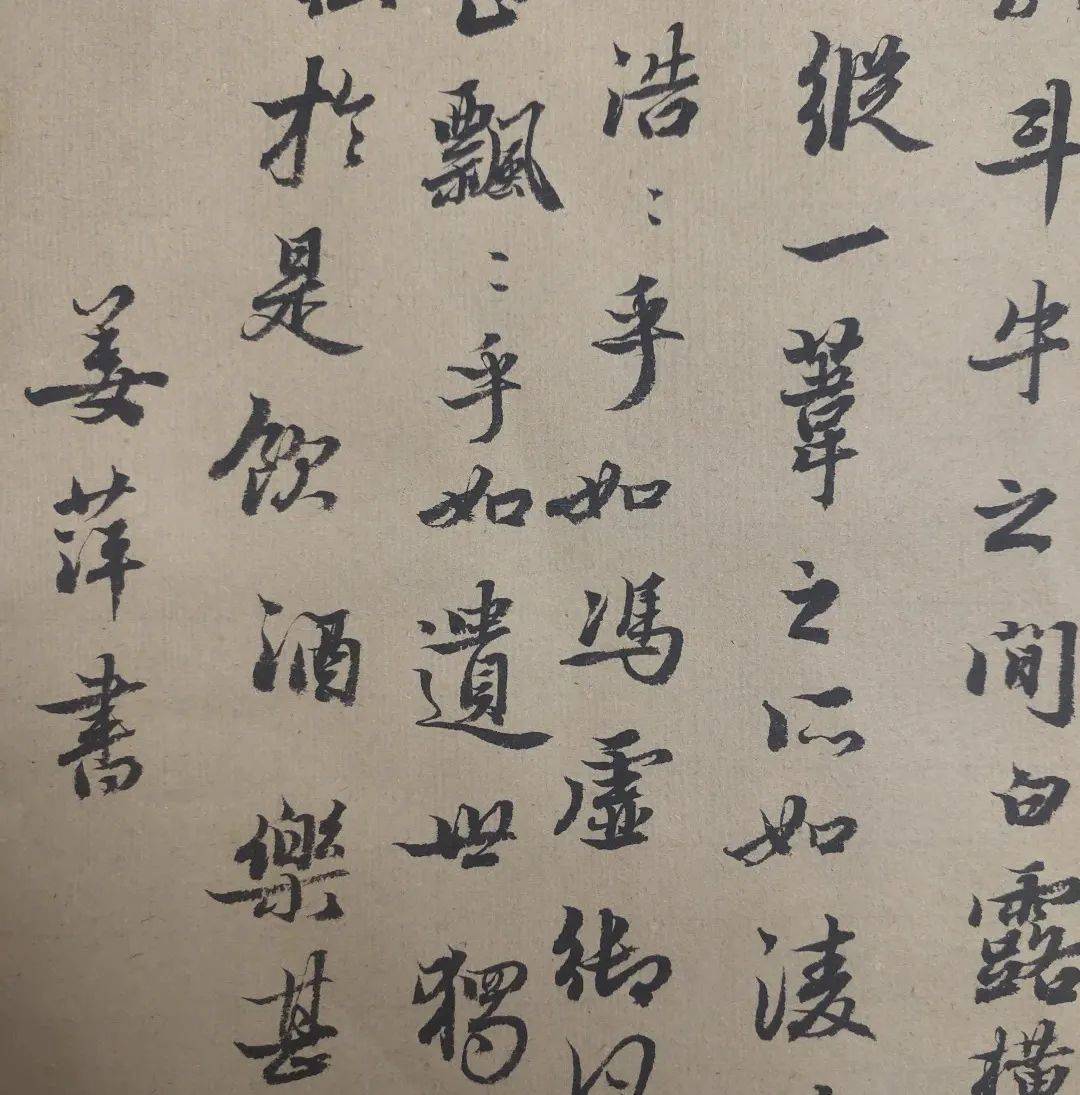 斗牛之間白露橫
縱一葦之所如淩
浩〻乎如馮虛御
飄〻乎如遺世獨
於是飲酒樂甚
姜萍書